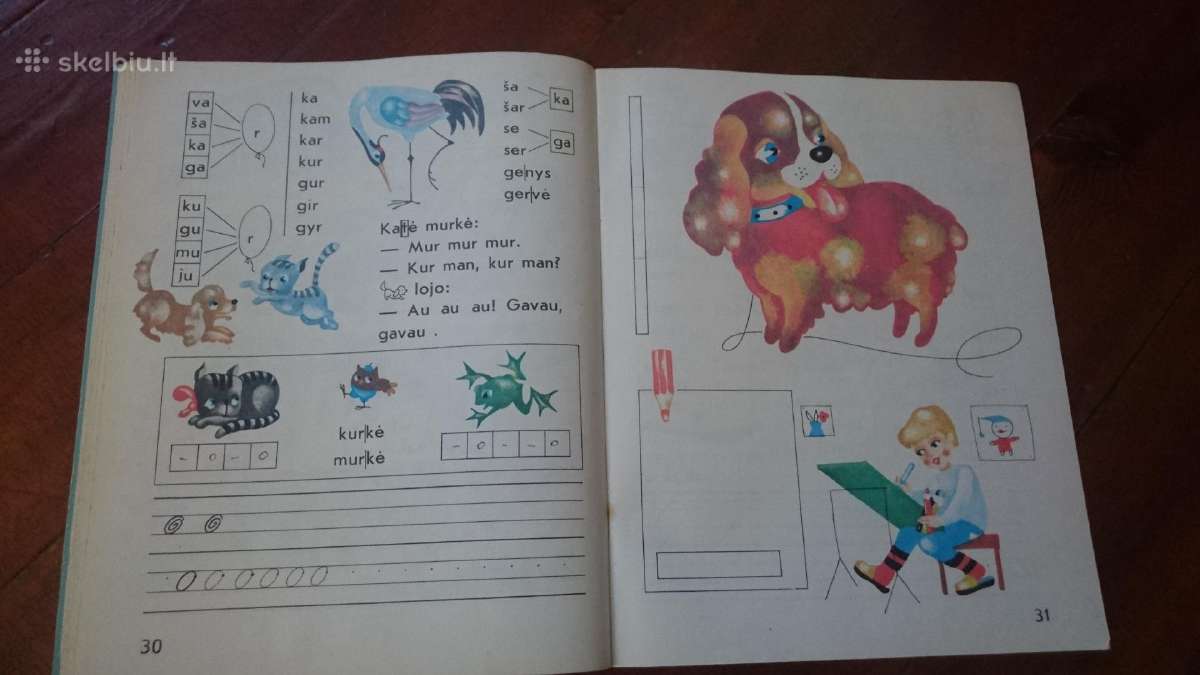 skelbiu.lt
va
ša
ka
ga
r
ku
gu
mu
ju
r
ka
kam
kar
kur
gur
gir
gyr
ša
šar
ka
se
ser
ga
genys
gervė
Katė murkė:
— Mur mur mur.
— Kur man, kur man?
lojo:
— Au au au! Gavau,
gavau .
- o - o
kurkė
murkė
- o - - o
30
31